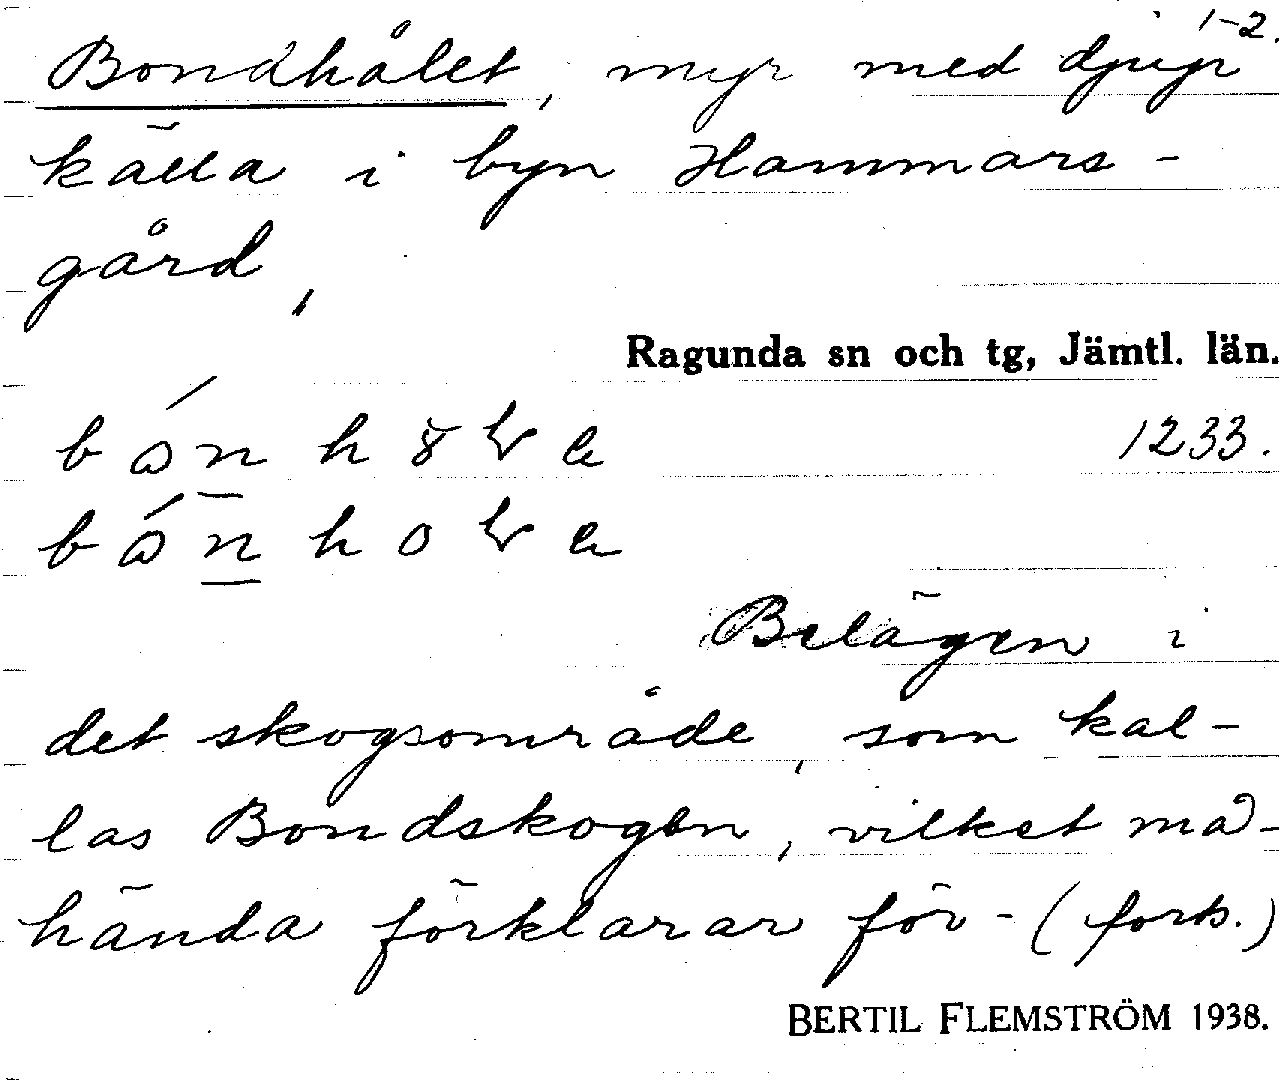 1-2.
Bondhålet, myr med djup
källa i byn Hammars-
gård,
Ragunda sn och tg, Jämtl. län.
1233.
Belägen i
det skogsområde, som kal-
las Bondskogen, vilket må-
hända förklarar för- (forts.)
BERTIL FLEMSTRÖM 1938.